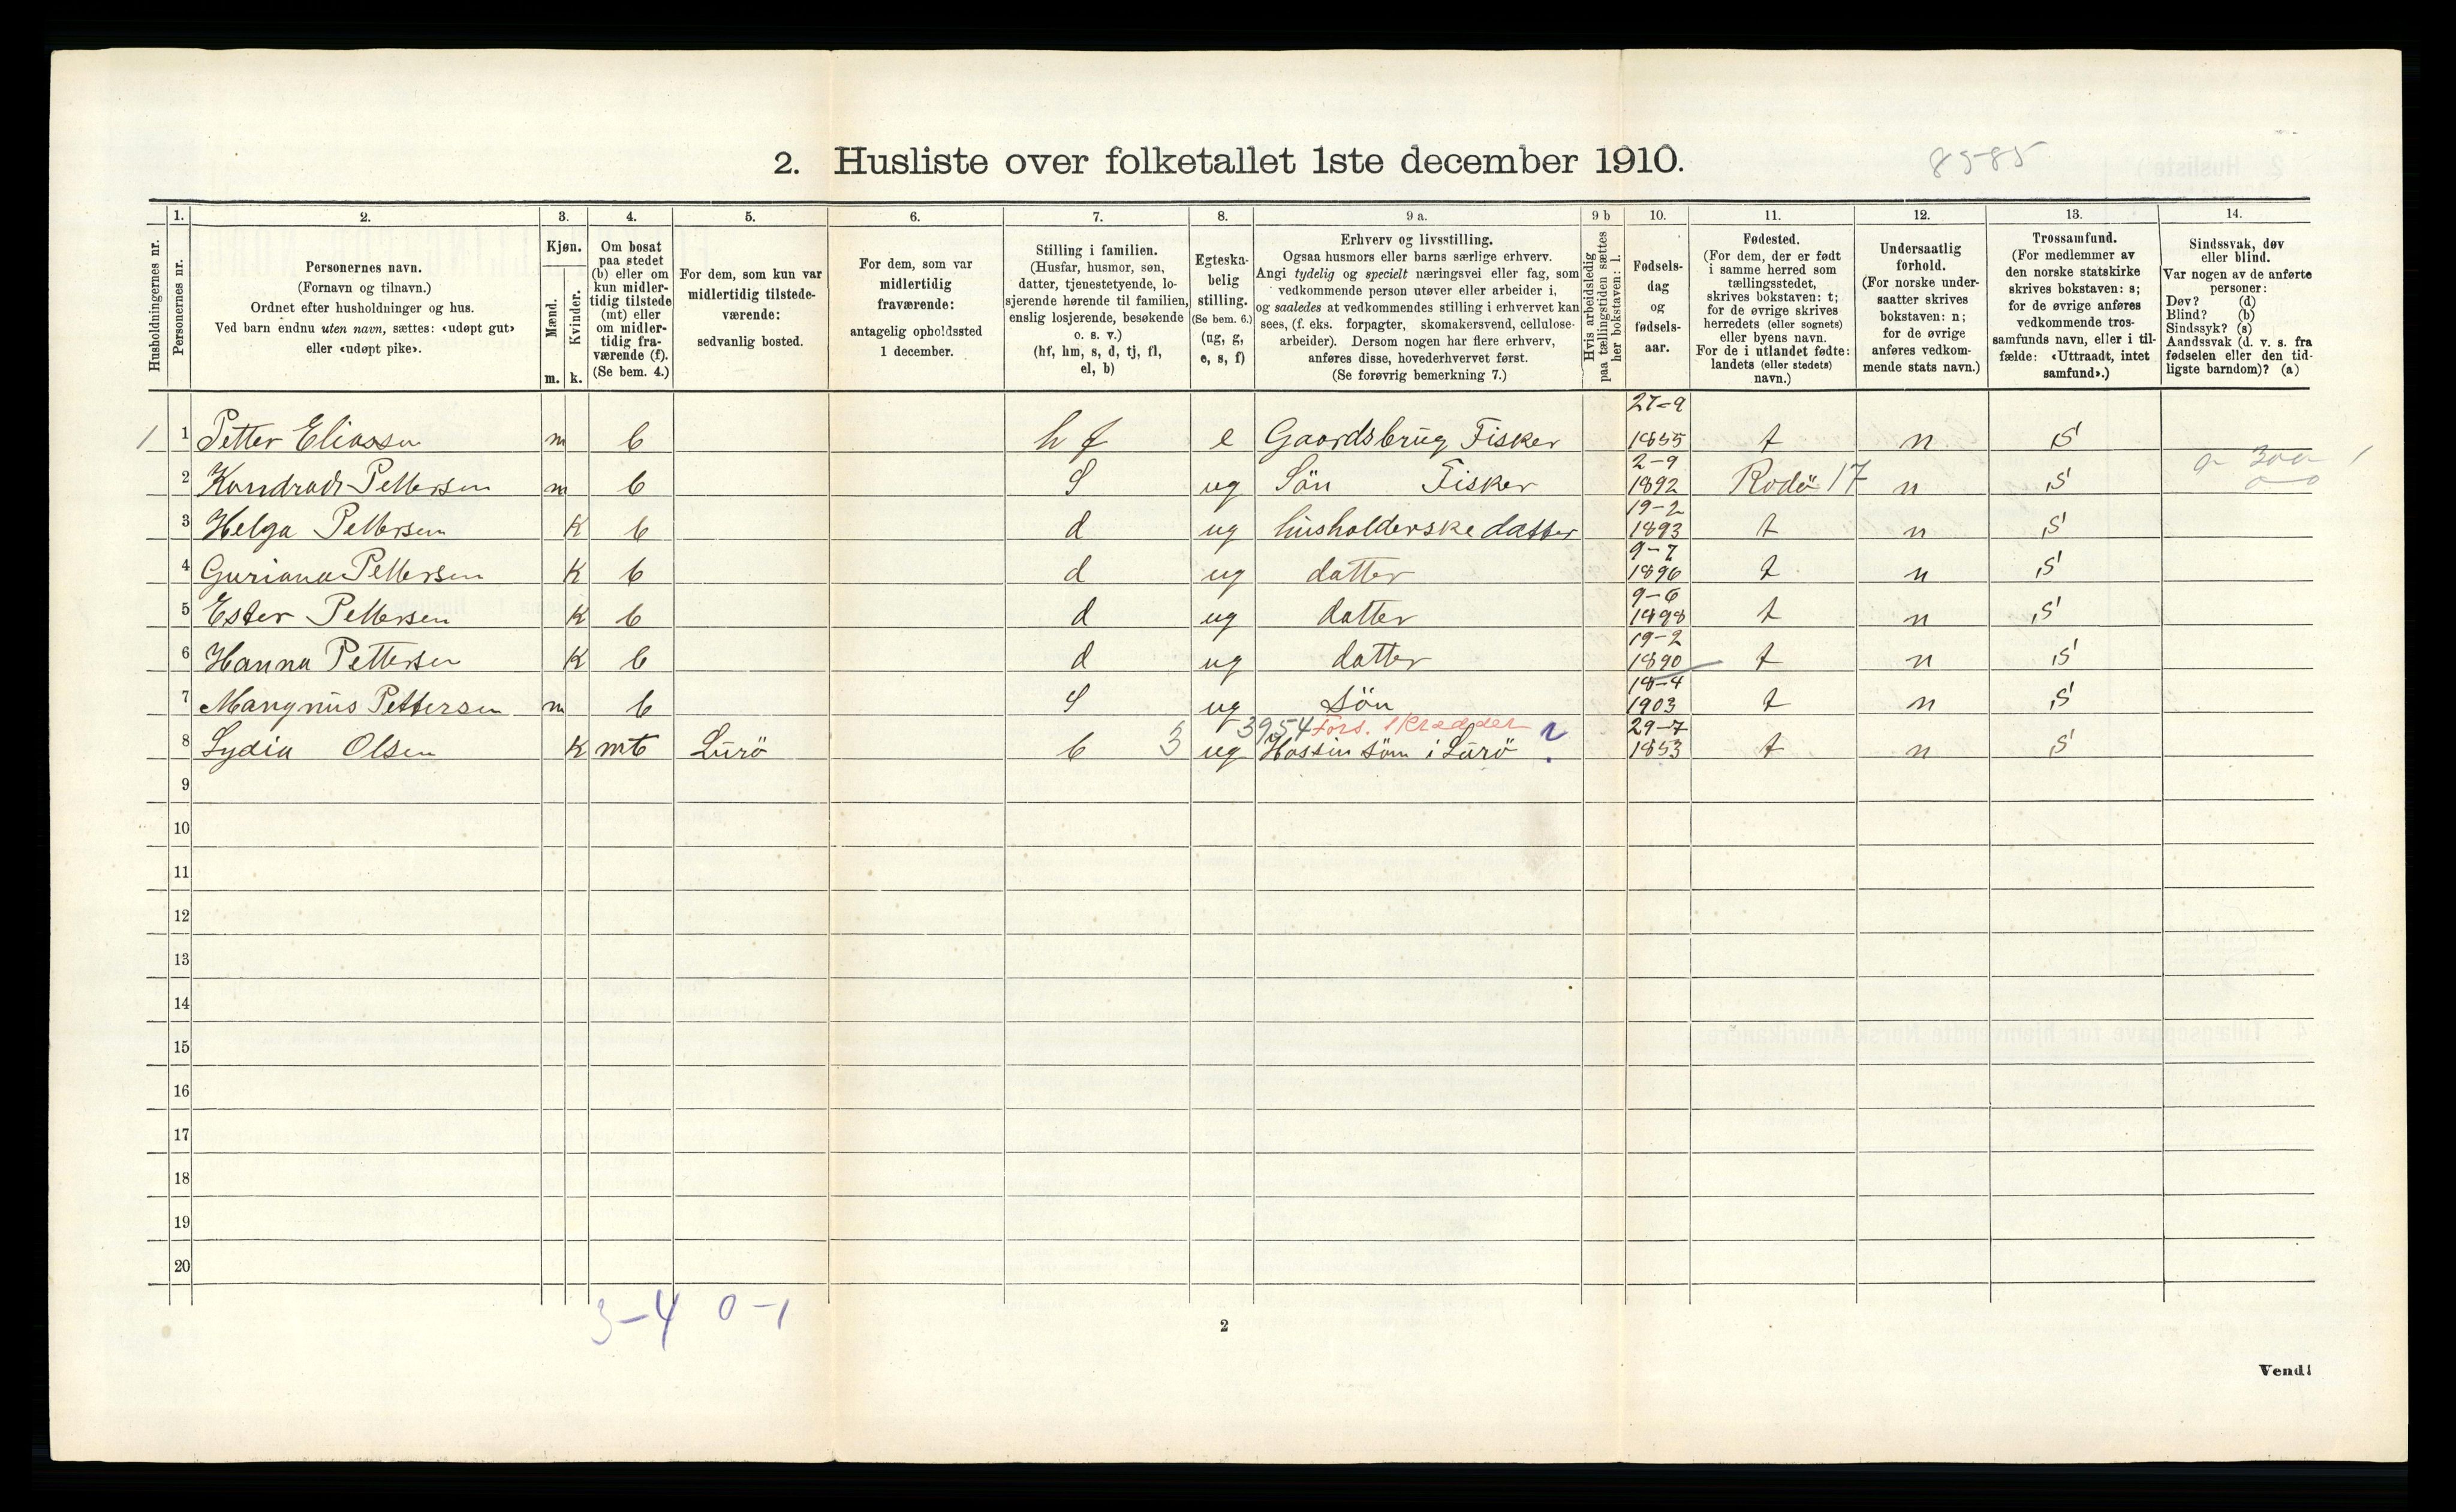 2. Husliste over folketallet 1ste december 1910.
8585
1. 2. 3. 4. 5. 6. 7. 8. 9 a. 9 b 10. 11. 12. 13. 14.
Husholdningernes nr.
Personernes nr.
Personernes navn.
(Fornavn og tilnavn.)
Ordnet efter husholdninger og hus.
Ved barn endnu uten navn, sættes: «udøpt gut»
eller «udøpt pike».
Kjøn.
Mænd.
Kvinder.
m. k.
Om bosat
paa stedet
(b) eller om
kun midler-
tidig tilstede
(mt) eller
om midler-
tidig fra-
værende (f).
(Se bem. 4.)
For dem, som kun var
midlertidig tilstede-
værende:
sedvanlig bosted.
For dem, som var
midlertidig
fraværende:
antagelig opholdssted
1 december.
Stilling i familien.
(Husfar, husmor, søn,
datter, tjenestetyende, lo-
sjerende hørende til familien,
enslig losjerende, besøkende
o. s. v.)
(hf, hm, s, d, tj, fl,
el, b)
Egteska-
belig
stilling.
(Se bem. 6.)
(ug, g,
e, s, f)
Erhverv og livsstilling.
Ogsaa husmors eller barns særlige erhverv.
Angi tydelig og specielt næringsvei eller fag, som
vedkommende person utøver eller arbeider i,
og saaledes at vedkommendes stilling i erhvervet kan
sees, (f. eks. forpagter, skomakersvend, cellulose-
arbeider). Dersom nogen har flere erhverv,
anføres disse, hovederhvervet først.
(Se forøvrig bemerkning 7.)
Hvis arbeidsledig
paa tællingstiden sættes
her bokstaven: l.
Fødsels-
dag
og
fødsels-
aar.
Fødested.
(For dem, der er født
i samme herred som
tællingsstedet,
skrives bokstaven: t;
for de øvrige skrives
herredets (eller sognets)
eller byens navn.
For de i utlandet fødte:
landets (eller stedets)
navn.)
Undersaatlig
forhold.
(For norske under-
saatter skrives
bokstaven: n;
for de øvrige
anføres vedkom-
mende stats navn.)
Trossamfund.
(For medlemmer av
den norske statskirke
skrives bokstaven: s;
for de øvrige anføres
vedkommende tros-
samfunds navn, eller i til-
fælde: «Uttraadt, intet
samfund».)
Sindssvak, døv
eller blind.
Var nogen av de anførte
personer:
Døv? (d)
Blind? (b)
Sindssyk? (s)
Aandssvak (d. v. s. fra
fødselen eller den tid-
ligste barndom)? (a)
27-9
1 1 Petter Eliassen m b hf e Gaardsbrug Fisker 1855 t n S
2-9
2 Kondradr Pettersen m b S ug Sön Fisker 1892 Rodö 17 n S
19-2
3 Helga Pettersen K b d ug husholderske datter 1893 t n S
9-7
4 Guriana Pettersen K b d ug datter 1896 t n S
9-6
5 Ester Pettersen K b d ug datter 1898 t n S
19-2
6 Hanna Pettersen K b d ug datter 1890 t n S
18-4
7 Mangnus Pettersen m b S ug Sön 1903 t n S
3954 Fors. 29-7
8 Lydia Olsen K mt Lurö b 3 ug söm i Lurö ? 1853 t n S
9
10
11
12
13
14
15
16
17
18
19
20
3-4 0-1
2
Vend!